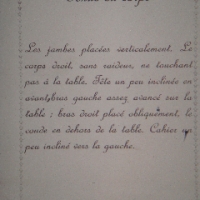 Tenue du corps
Les jambes placées verticalement. Le
corps droit, sans raideur, ne touchant
pas à la table. Tête un peu inclinée en
avant; bras gauche assez avancé sur la
table; bras droit placé obliquement, le
coude en dehors de la table. Cahier un
peu incliné vers la gauche.